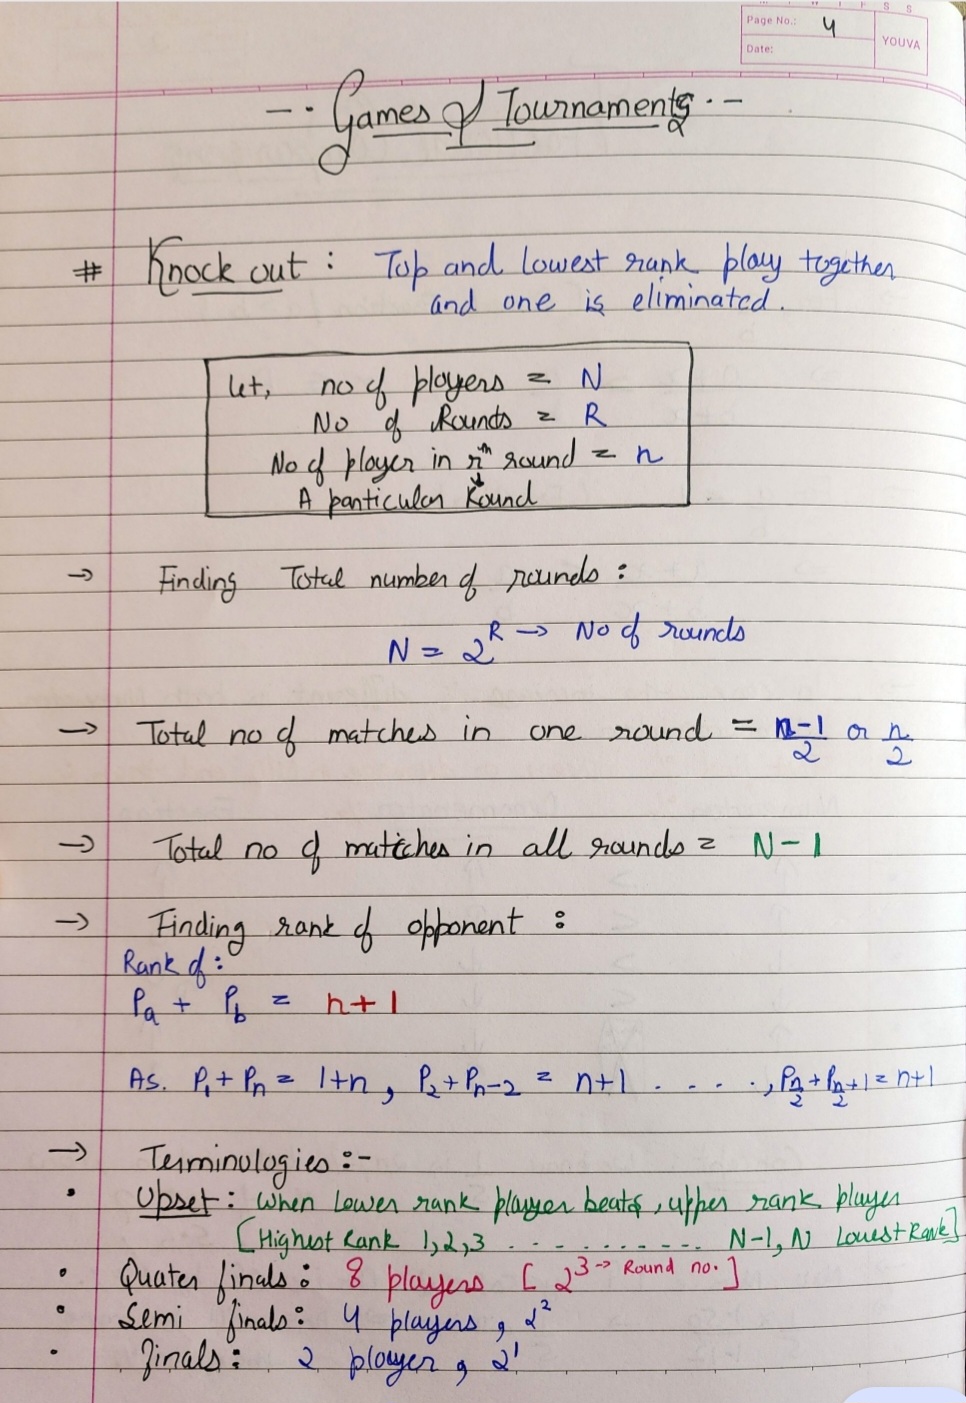 S S
Page No.: 4
Date:
YOUVA
Games of Tournaments
# Knock out : Top and lowest rank play together
and one is eliminated.
Let, no of players = N
No of Rounds = R
No of player in rth round = n
A particular Round
→ Finding Total number of rounds :
N = 2^R → No of rounds
→ Total no of matches in one round = n-1/2 or n/2
→ Total no of matches in all rounds = N-1
→ Finding rank of opponent :
Rank of :
Pa + Pb = n+1
As. P1 + Pn = 1+n , P2 + Pn-2 = n+1 . . . . , Pn/2 + Pn/2+1 = n+1
→ Terminologies :-
• Upset : When Lower rank player beats, upper rank player
[Highest Rank 1,2,3 ............ N-1, N Lowest Rank]
• Quater finals : 8 players [ 2^3 → Round no. ]
• Semi finals : 4 players , 2^2
• finals : 2 player , 2^1